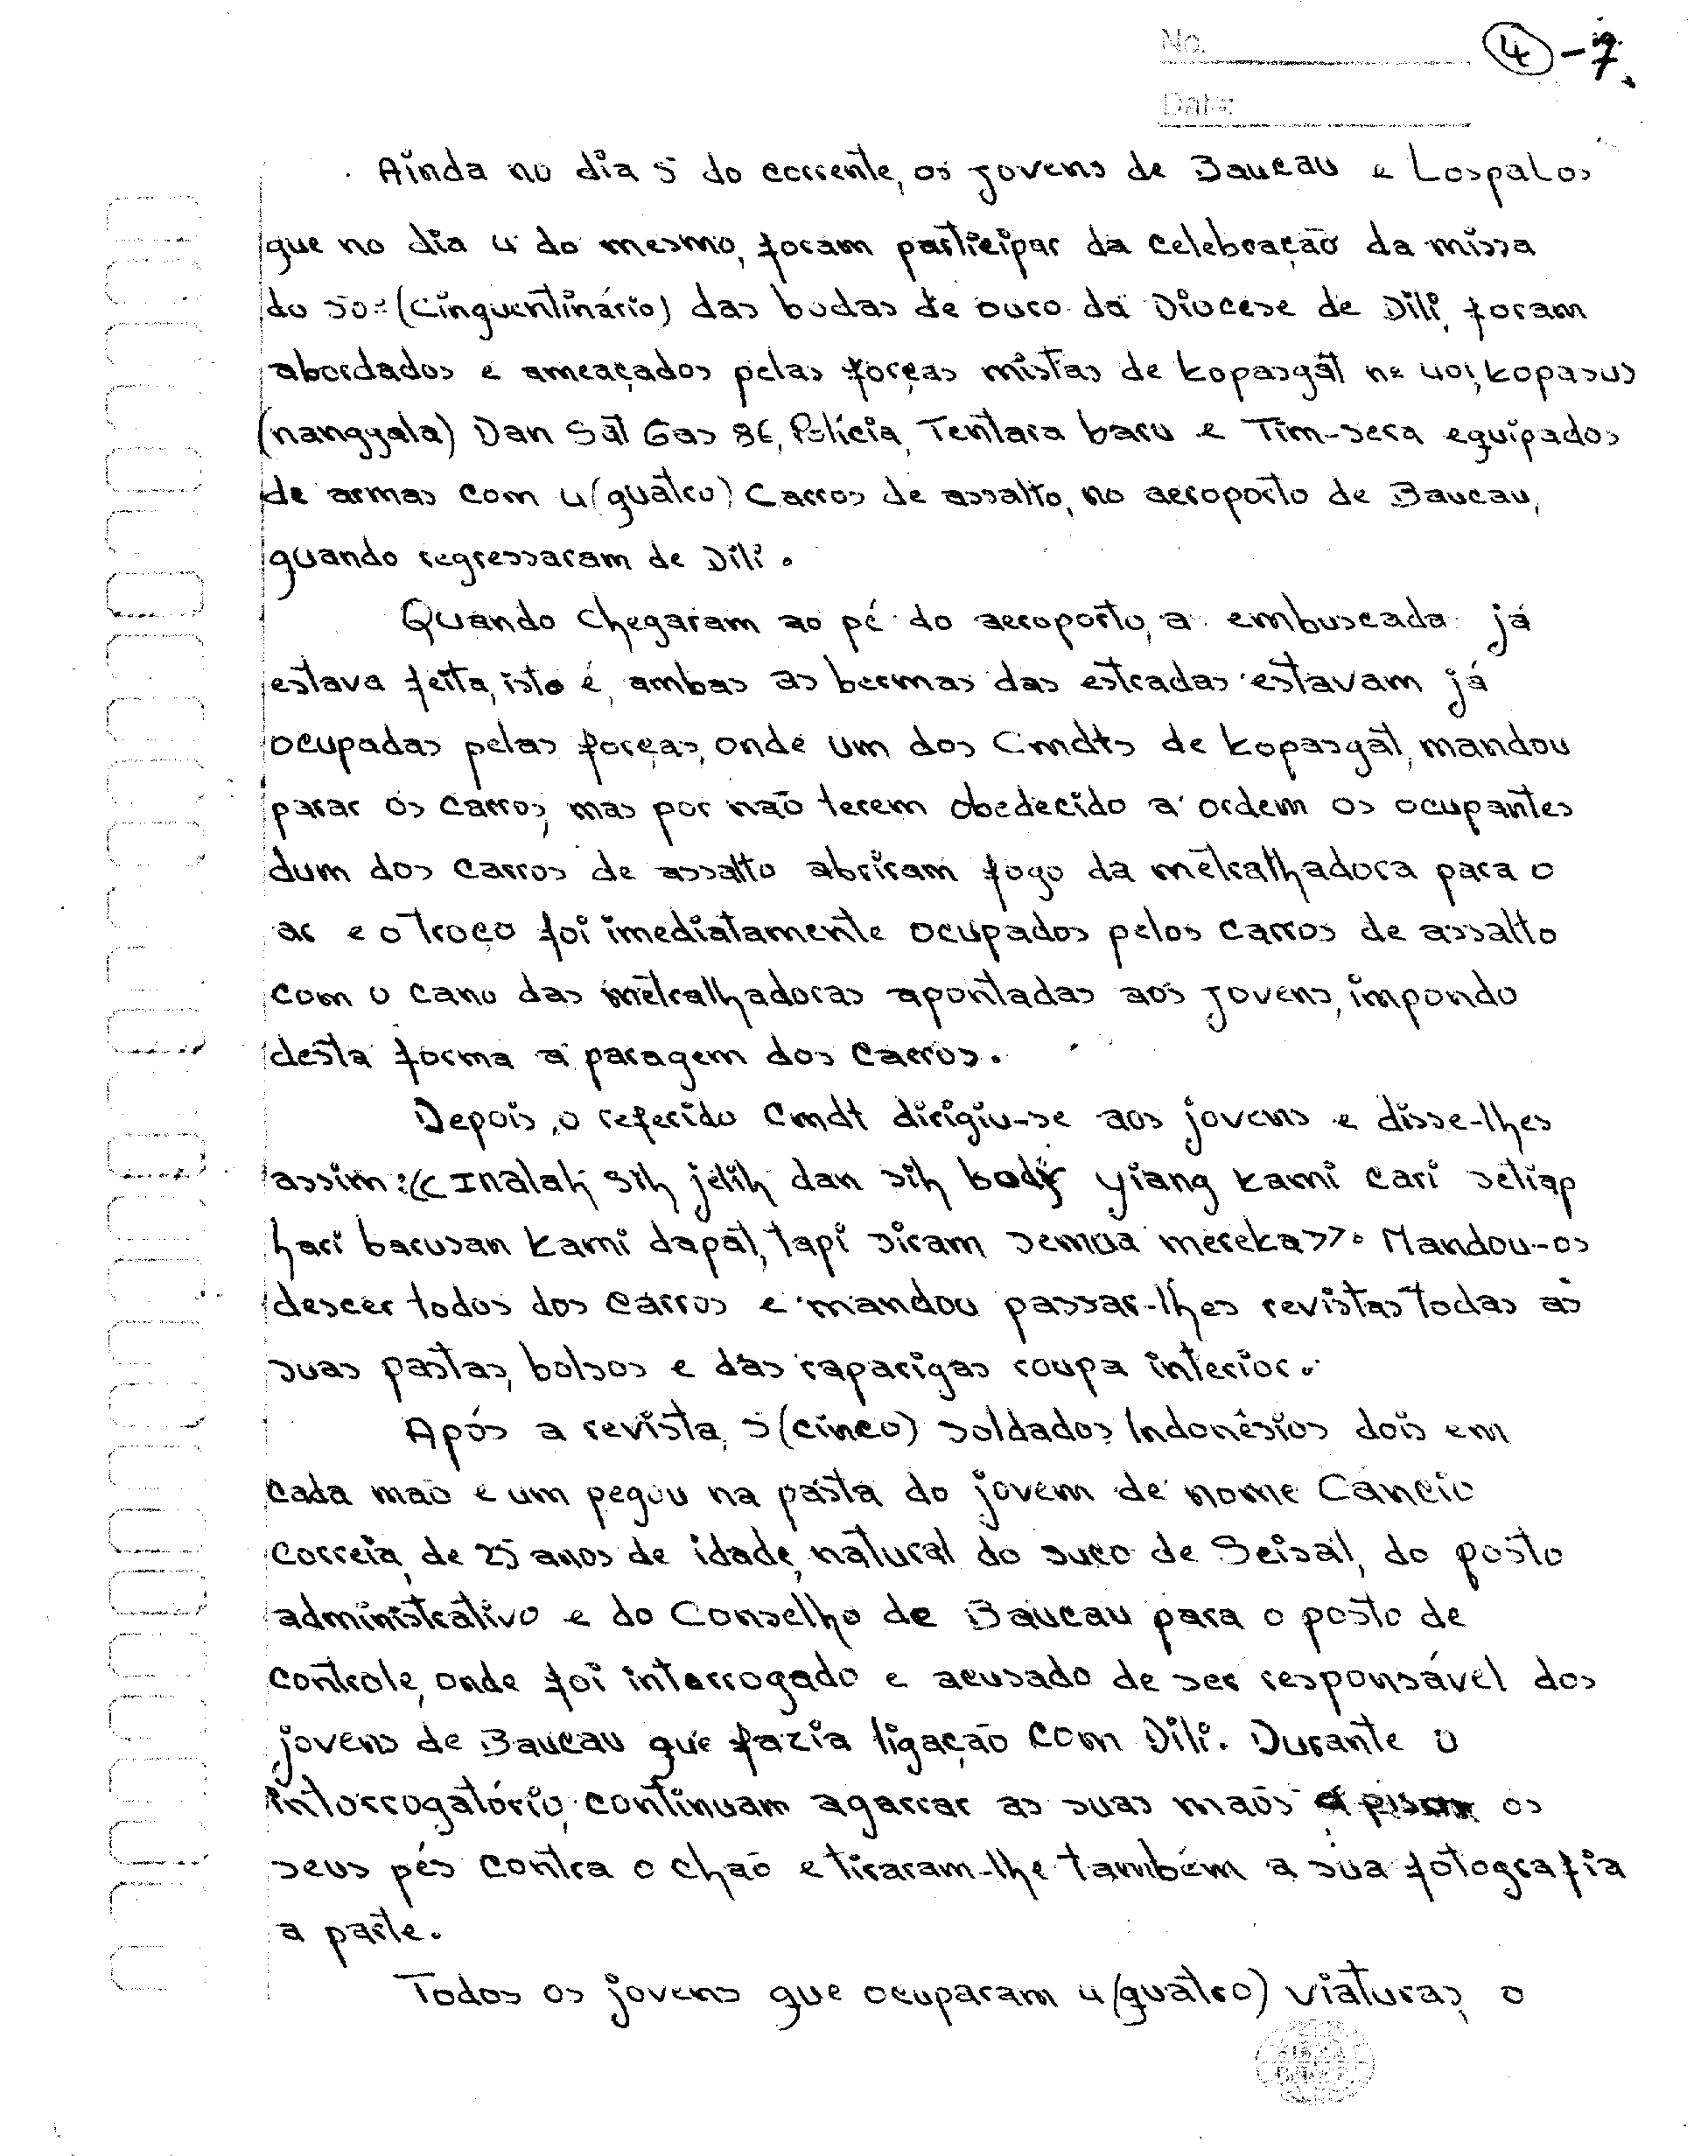 No. ④ - 7.
Date:
Ainda no dia 5 do corrente, os jovens de Baucau e Lospalos
que no dia 4 do mesmo, foram participar da celebração da missa
do 50º (Cinquentinário) das bodas de ouro da Diocese de Dili, foram
abordados e ameaçados pelas forças mistas de Kopasgát nº 401, Kopasus
(nanggala) Dan Sat Gas 86, Polícia, Tentara baru e Tim-sera equipados
de armas com 4 (quatro) Carros de assalto, no aeroporto de Baucau,
quando regressaram de Dili.
Quando chegaram ao pé do aeroporto, a embuscada já
estava feita, isto é, ambas as bermas das estradas estavam já
ocupadas pelas forças, onde um dos Cmdts de Kopasgát, mandou
parar os carros, mas por não terem obedecido a ordem os ocupantes
dum dos carros de assalto abriram fogo da metralhadora para o
ar e o troço foi imediatamente ocupados pelos carros de assalto
com o cano das metralhadoras apontadas aos jovens, impondo
desta forma a paragem dos carros.
Depois, o referido Cmdt dirigiu-se aos jovens e disse-lhes
assim: << Inalah sih jelih dan sih yiang kami cari setiap
hari barusan kami dapat, tapi siram semua mereka >>. Mandou-os
descer todos dos carros e mandou passar-lhes revistas todas as
suas pastas, bolsos e das raparigas roupa interior.
Após a revista, 5 (cinco) soldados Indonésios dois em
cada mão e um pegou na pasta do jovem de nome Câncio
Correia, de 25 anos de idade, natural do suco de Seisal, do posto
administrativo e do Conselho de Baucau para o posto de
controle, onde foi interrogado e acusado de ser responsável dos
jovens de Baucau que fazia ligação com Dili. Durante o
intorrogatório, continuam agarrar as suas mãos e pisar os
seus pés contra o chão e tiraram-lhe também a sua fotografia
a parte.
Todos os jovens que ocuparam 4 (quatro) viaturas, o